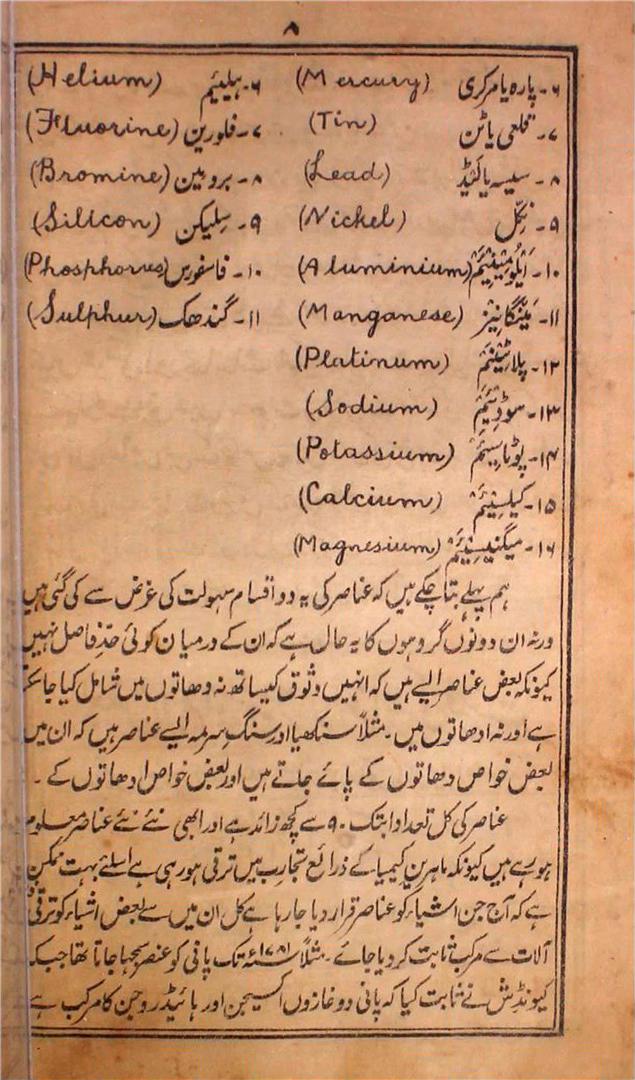 ۸
۶۔ پارہ یا مرکری (Mercury) ۶۔ ہیلیئیم (Helium)
۷۔ قلعی یا ٹن (Tin) ۷۔ فلورین (Fluorine)
۸۔ سیسہ یا لَیڈ (Lead) ۸۔ برومین (Bromine)
۹۔ نِکّل (Nickel) ۹۔ سِلیکن (Silicon)
۱۰۔ ایلُومِینیَم (Aluminium) ۱۰۔ فاسفورس (Phosphorus)
۱۱۔ مَینگانیز (Manganese) ۱۱۔ گندھک (Sulphur)
۱۲۔ پلاٹینَم (Platinum)
۱۳۔ سوڈیَم (Sodium)
۱۴۔ پوٹاسیَم (Potassium)
۱۵۔ کیلسِیَم (Calcium)
۱۶۔ میگنیسِیَم (Magnesium)
ہم پہلے بتا چکے ہیں کہ عناصر کی یہ دو اقسام سہولت کی غرض سے کی گئی ہیں
ورنہ ان دونوں گروہوں کا یہ حال ہے کہ ان کے درمیان کوئی حدِ فاصل نہیں
کیونکہ بعض عناصر ایسے ہیں کہ انہیں وثوق کیساتھ نہ دھاتوں میں شامل کیا جا سکتا
ہے اور نہ ادھاتوں میں۔ مثلاً سنکھیا اور سنگِ سرمہ ایسے عناصر ہیں کہ ان میں
بعض خواص دھاتوں کے پائے جاتے ہیں اور بعض خواص ادھاتوں کے۔
عناصر کی کل تعداد ابتک ۹۰ سے کچھ زائد ہے اور ابھی نئے نئے عناصر معلوم
ہو رہے ہیں کیونکہ ماہرینِ کیمیا کے ذرائع تجارب میں ترقی ہو رہی ہے اسلئے بہت ممکن
ہے کہ آج جن اشیاء کو عناصر قرار دیا جا رہا ہے کل ان میں سے بعض اشیاء کو ترقی
آلات سے مرکب ثابت کر دیا جائے۔ مثلاً سنہ ۱۷۸۱ء تک پانی کو عنصر سمجہا جاتا تھا جبکہ
کیونڈش نے ثابت کیا کہ پانی دو غازوں اکسیجن اور ہائیڈروجن کا مرکب ہے